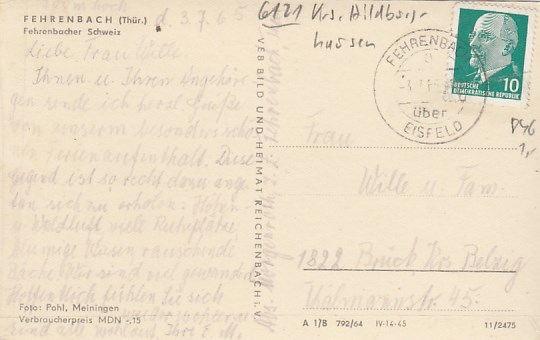 FEHRENBACH (Thür.)
Fehrenbacher Schweiz
d. 3.7.65
Liebe Frau Wille
Ihnen u. Ihren Angehöri-
gen sende ich herzl. Grüße
von unserem besonders schön
en Ferienaufenthalt. Diese
Gegend ist so recht dazu ange-
tan sich zu erholen: Höhen-
u. Waldluft viele Ruheplätze
blumige Wiesen rauschende
Bäche. Wir sind
Hoffentlich fühlen Sie sich
sind alle wohlauf. Ihre E. M.
Foto: Pohl, Meiningen
Verbraucherpreis MDN -,15
VEB BILD UND HEIMAT REICHENBACH i. V.
6121 Krs. Hildburg-
hausen
FEHRENBACH
über
EISFELD
10
DEUTSCHE
DEMOKRATISCHE REPUBLIK
Frau
Wille u. Fam.
1822 Brück Krs Belzig
Thälmannstr. 45
A 1/B 792/64 IV-14-45
11/2475